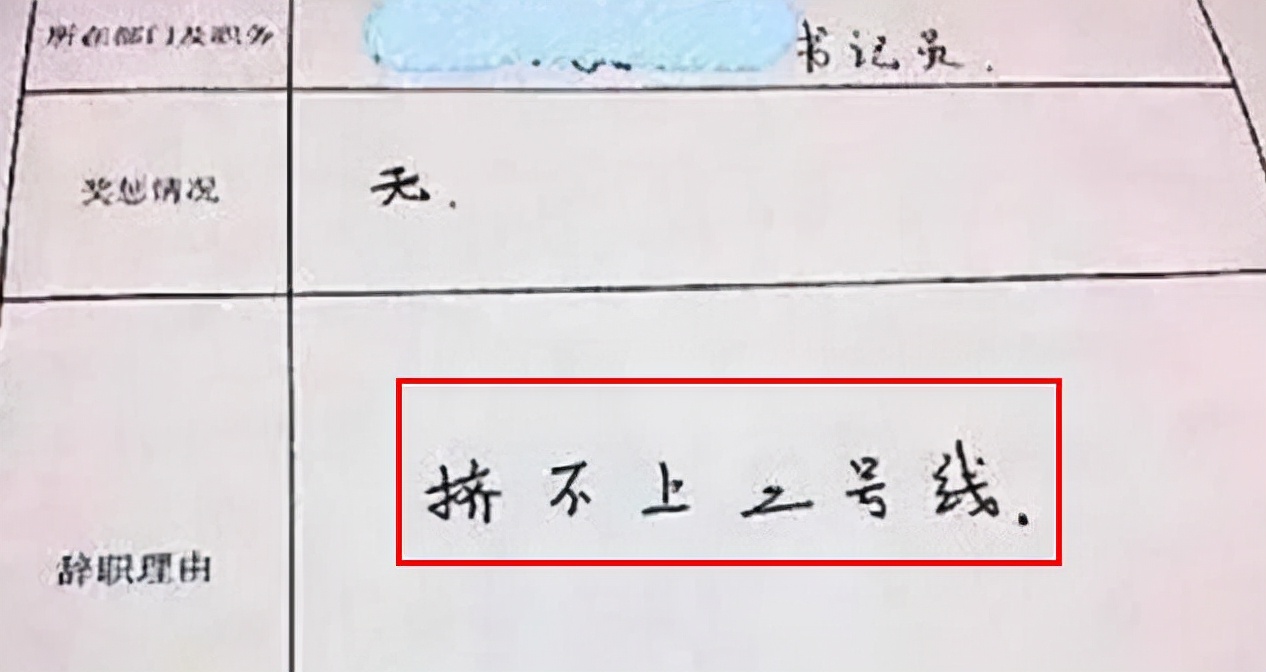 所在部门及职务 书记员.
奖惩情况 无.
挤不上二号线.
辞职理由